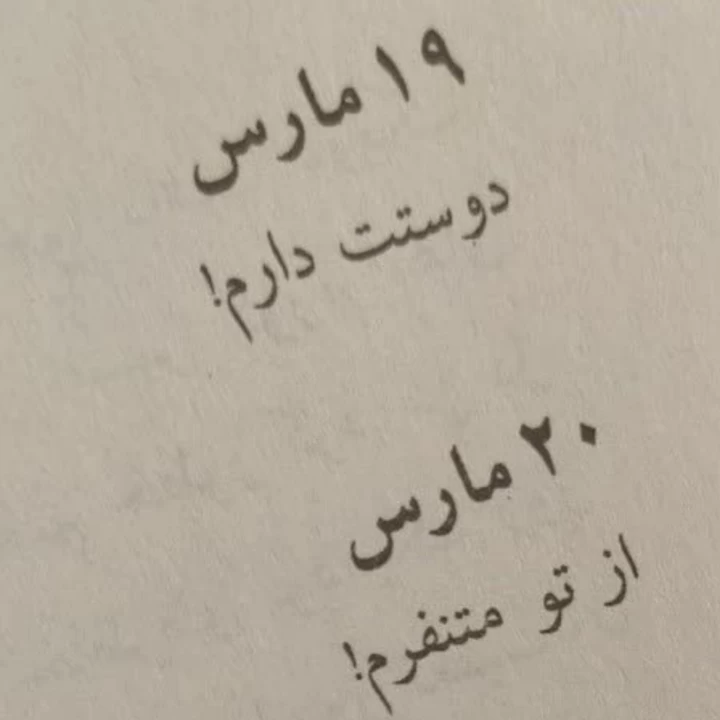 ۱۹ مارس
دوستت دارم!
۲۰ مارس
از تو متنفرم!